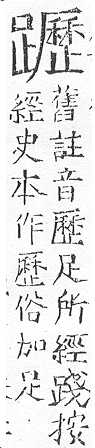 𨇗
舊註音歷足所經踐按
經史本作歷俗加足